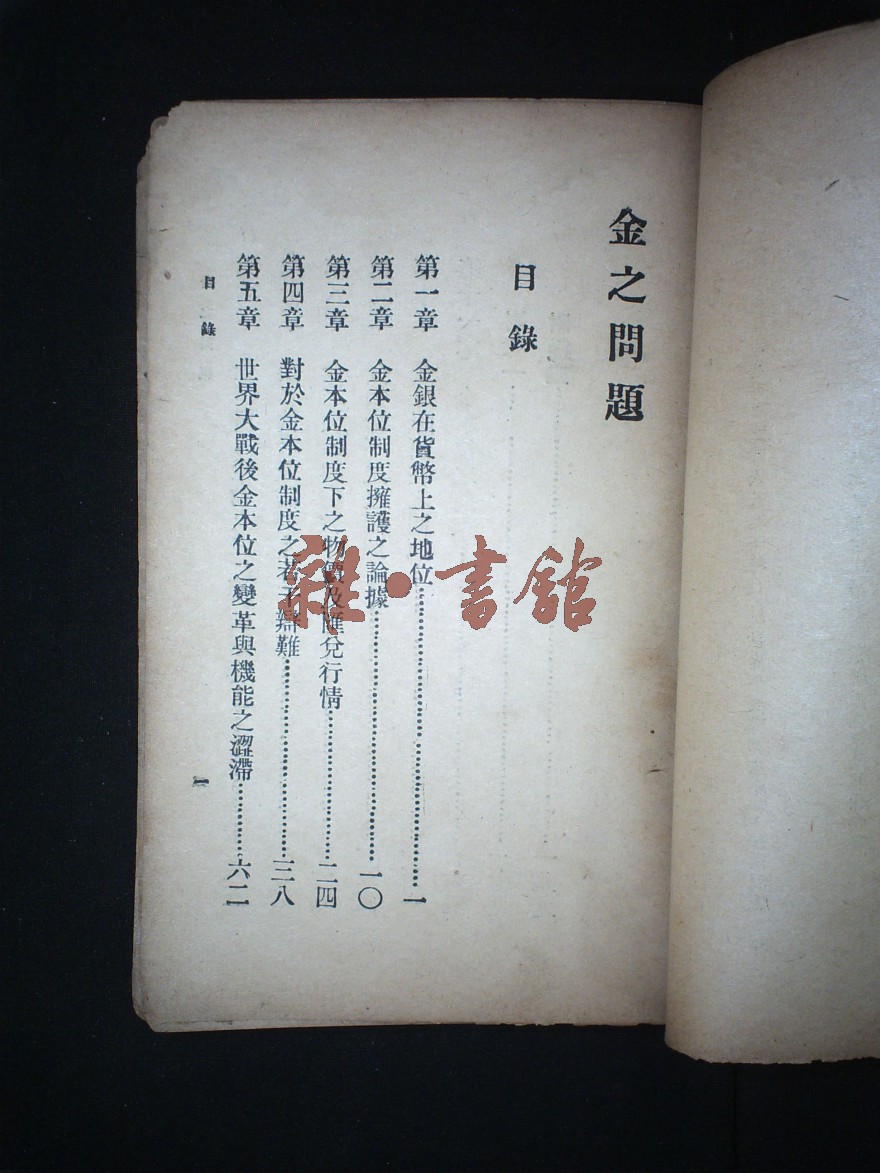 金之問題
目錄
第一章 金銀在貨幣上之地位 一
第二章 金本位制度擁護之論據 一〇
第三章 金本位制度下之物價及匯兌行情 二四
第四章 對於金本位制度之若干辯難 三八
第五章 世界大戰後金本位之變革與機能之澀滯 六二
目錄
一
雜·書館